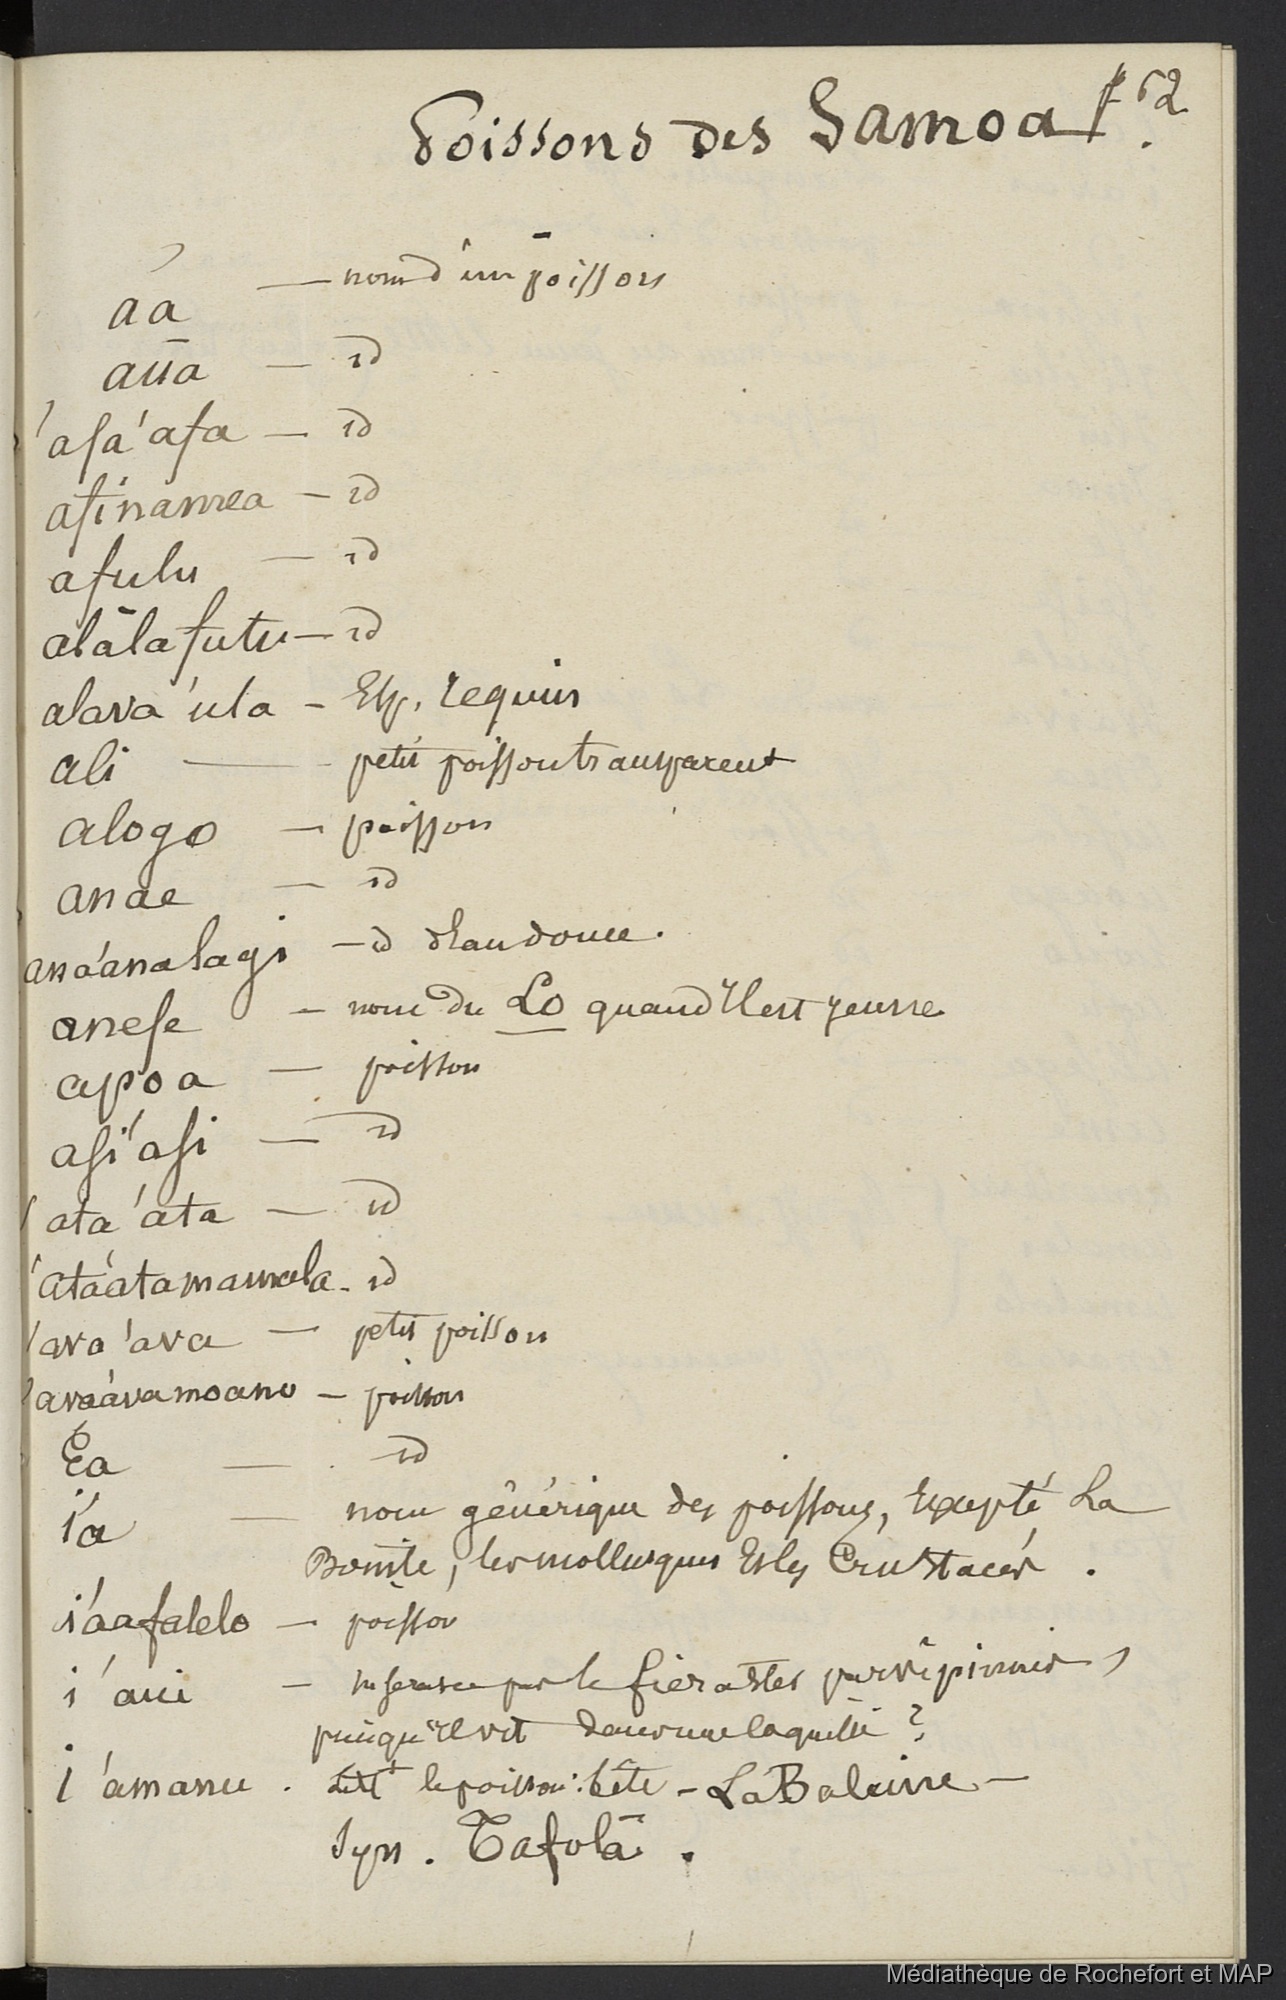 Poissons des Samoa f 62.
aa — nom d'un poisson
aua — id
'afa'afa — id
afinamea — id
afulu — id
alālafutu — id
alava'ula - Esp. requin
ali — petit poisson transparent
alogo — poisson
anae — id
ana'analagi — id d'Eau douce.
anefe — nom du Lo quand Il est jeune
apoa — poisson
asi'asi — id
'ata'ata — id
'ata'atamamala - id
'ava'ava — petit poisson
'ava'avamoana — poisson
Ea — id
i'a — nom générique des poissons, Excepté La
Bonite, les mollusques Et les Crustacés.
i'aafalelo — poisson
i'aui — le fierasfer parvipinnis,
puisqu'Il vit dans une coquille ?
i'amanu . Litt le poisson bête - La Baleine —
Syn. Tafolā.
Médiathèque de Rochefort et MAP